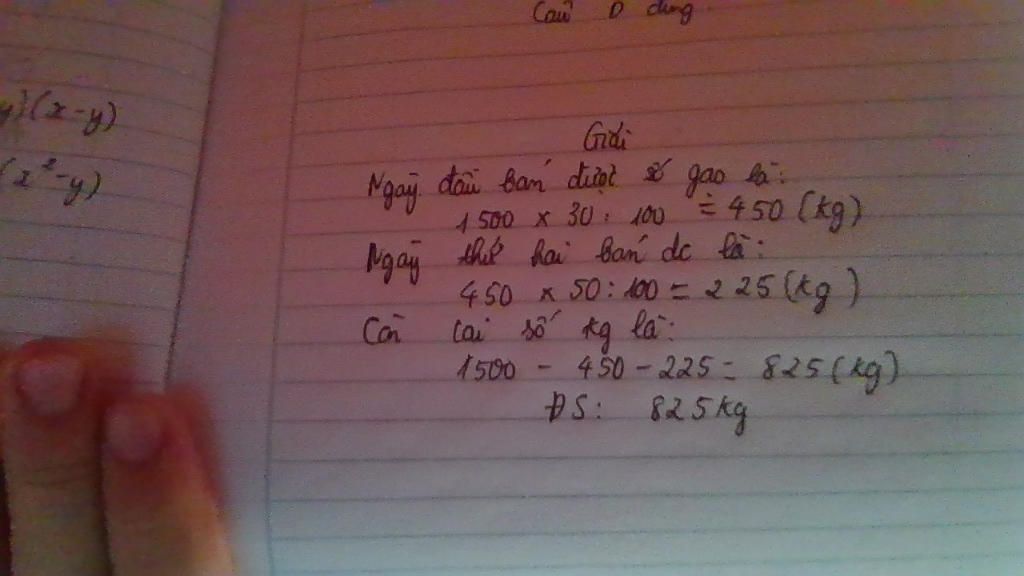 Câu D đúng.
y)(x-y)
(x²-y)
Giải
Ngày đầu bán được số gạo là:
1500 x 30 : 100 = 450 (kg)
Ngày thứ hai bán dc là:
450 x 50 : 100 = 225 (kg)
Còn lại số kg là:
1500 - 450 - 225 = 825 (kg)
ĐS: 825kg